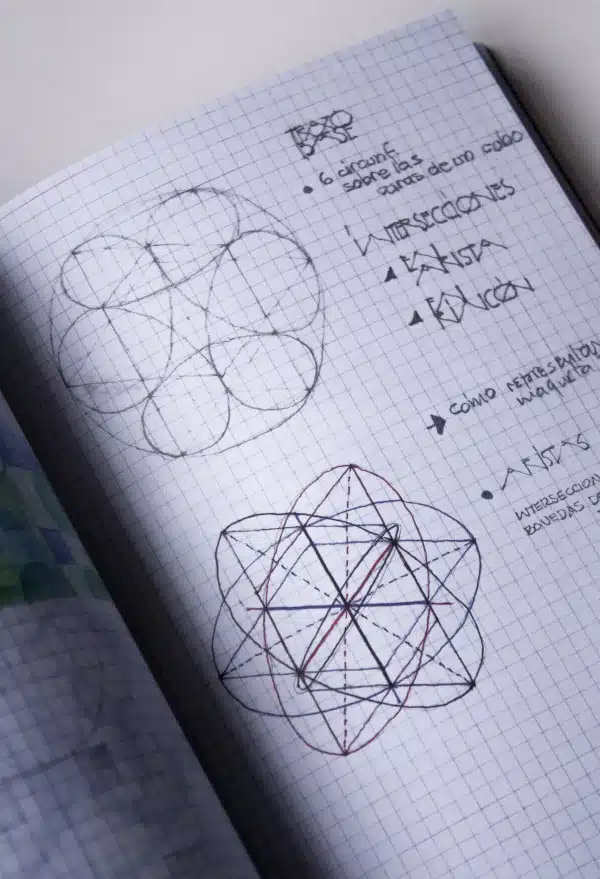 TRAZO
BASE
• 6 circunf.
sobre las
caras de un cubo
INTERSECCIONES
ARISTA
RINCÓN
como representar
maqueta
• ARISTAS
INTERSECCION
BOVEDAS DE